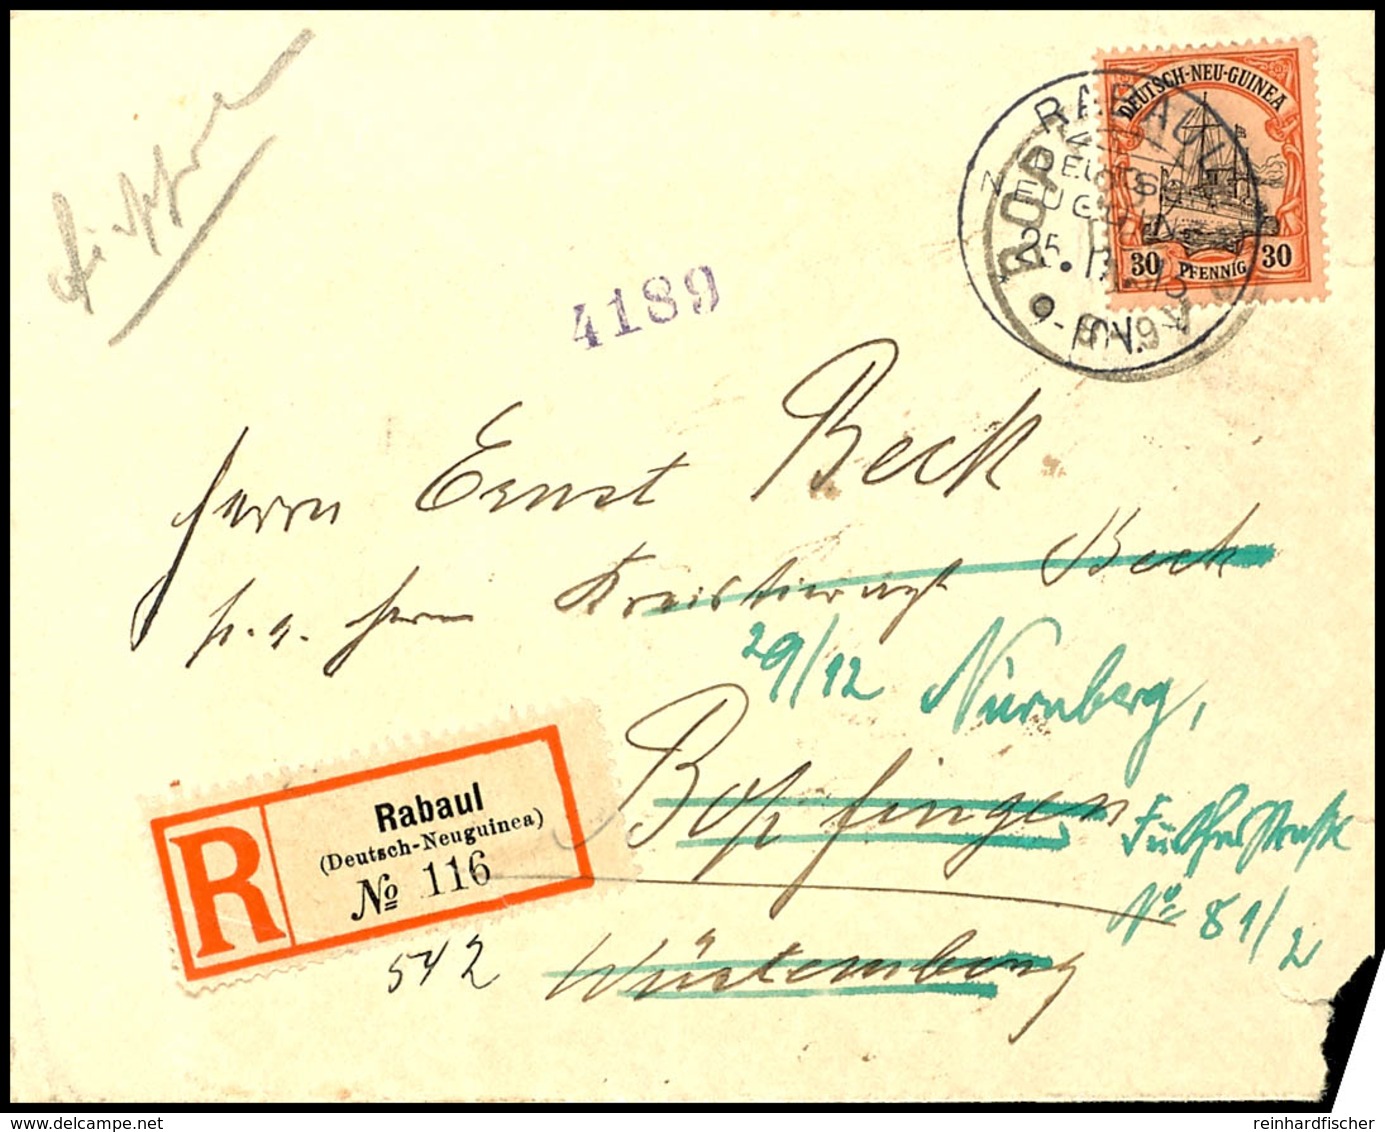 DEUTSCH-NEU-GUINEA
30 PFENNIG 30
RABAUL
DEUTSCH
NEUGUINEA
25.
BOPF
4189
Herrn Ernst Beck
p. a. Herrn Kreistierarzt Beck
29/12 Nürnberg,
Bopfingen
Fürtherstraße
No 81/2
Württemberg
R
Rabaul
(Deutsch-Neuguinea)
No 116
542
reinhardfischer